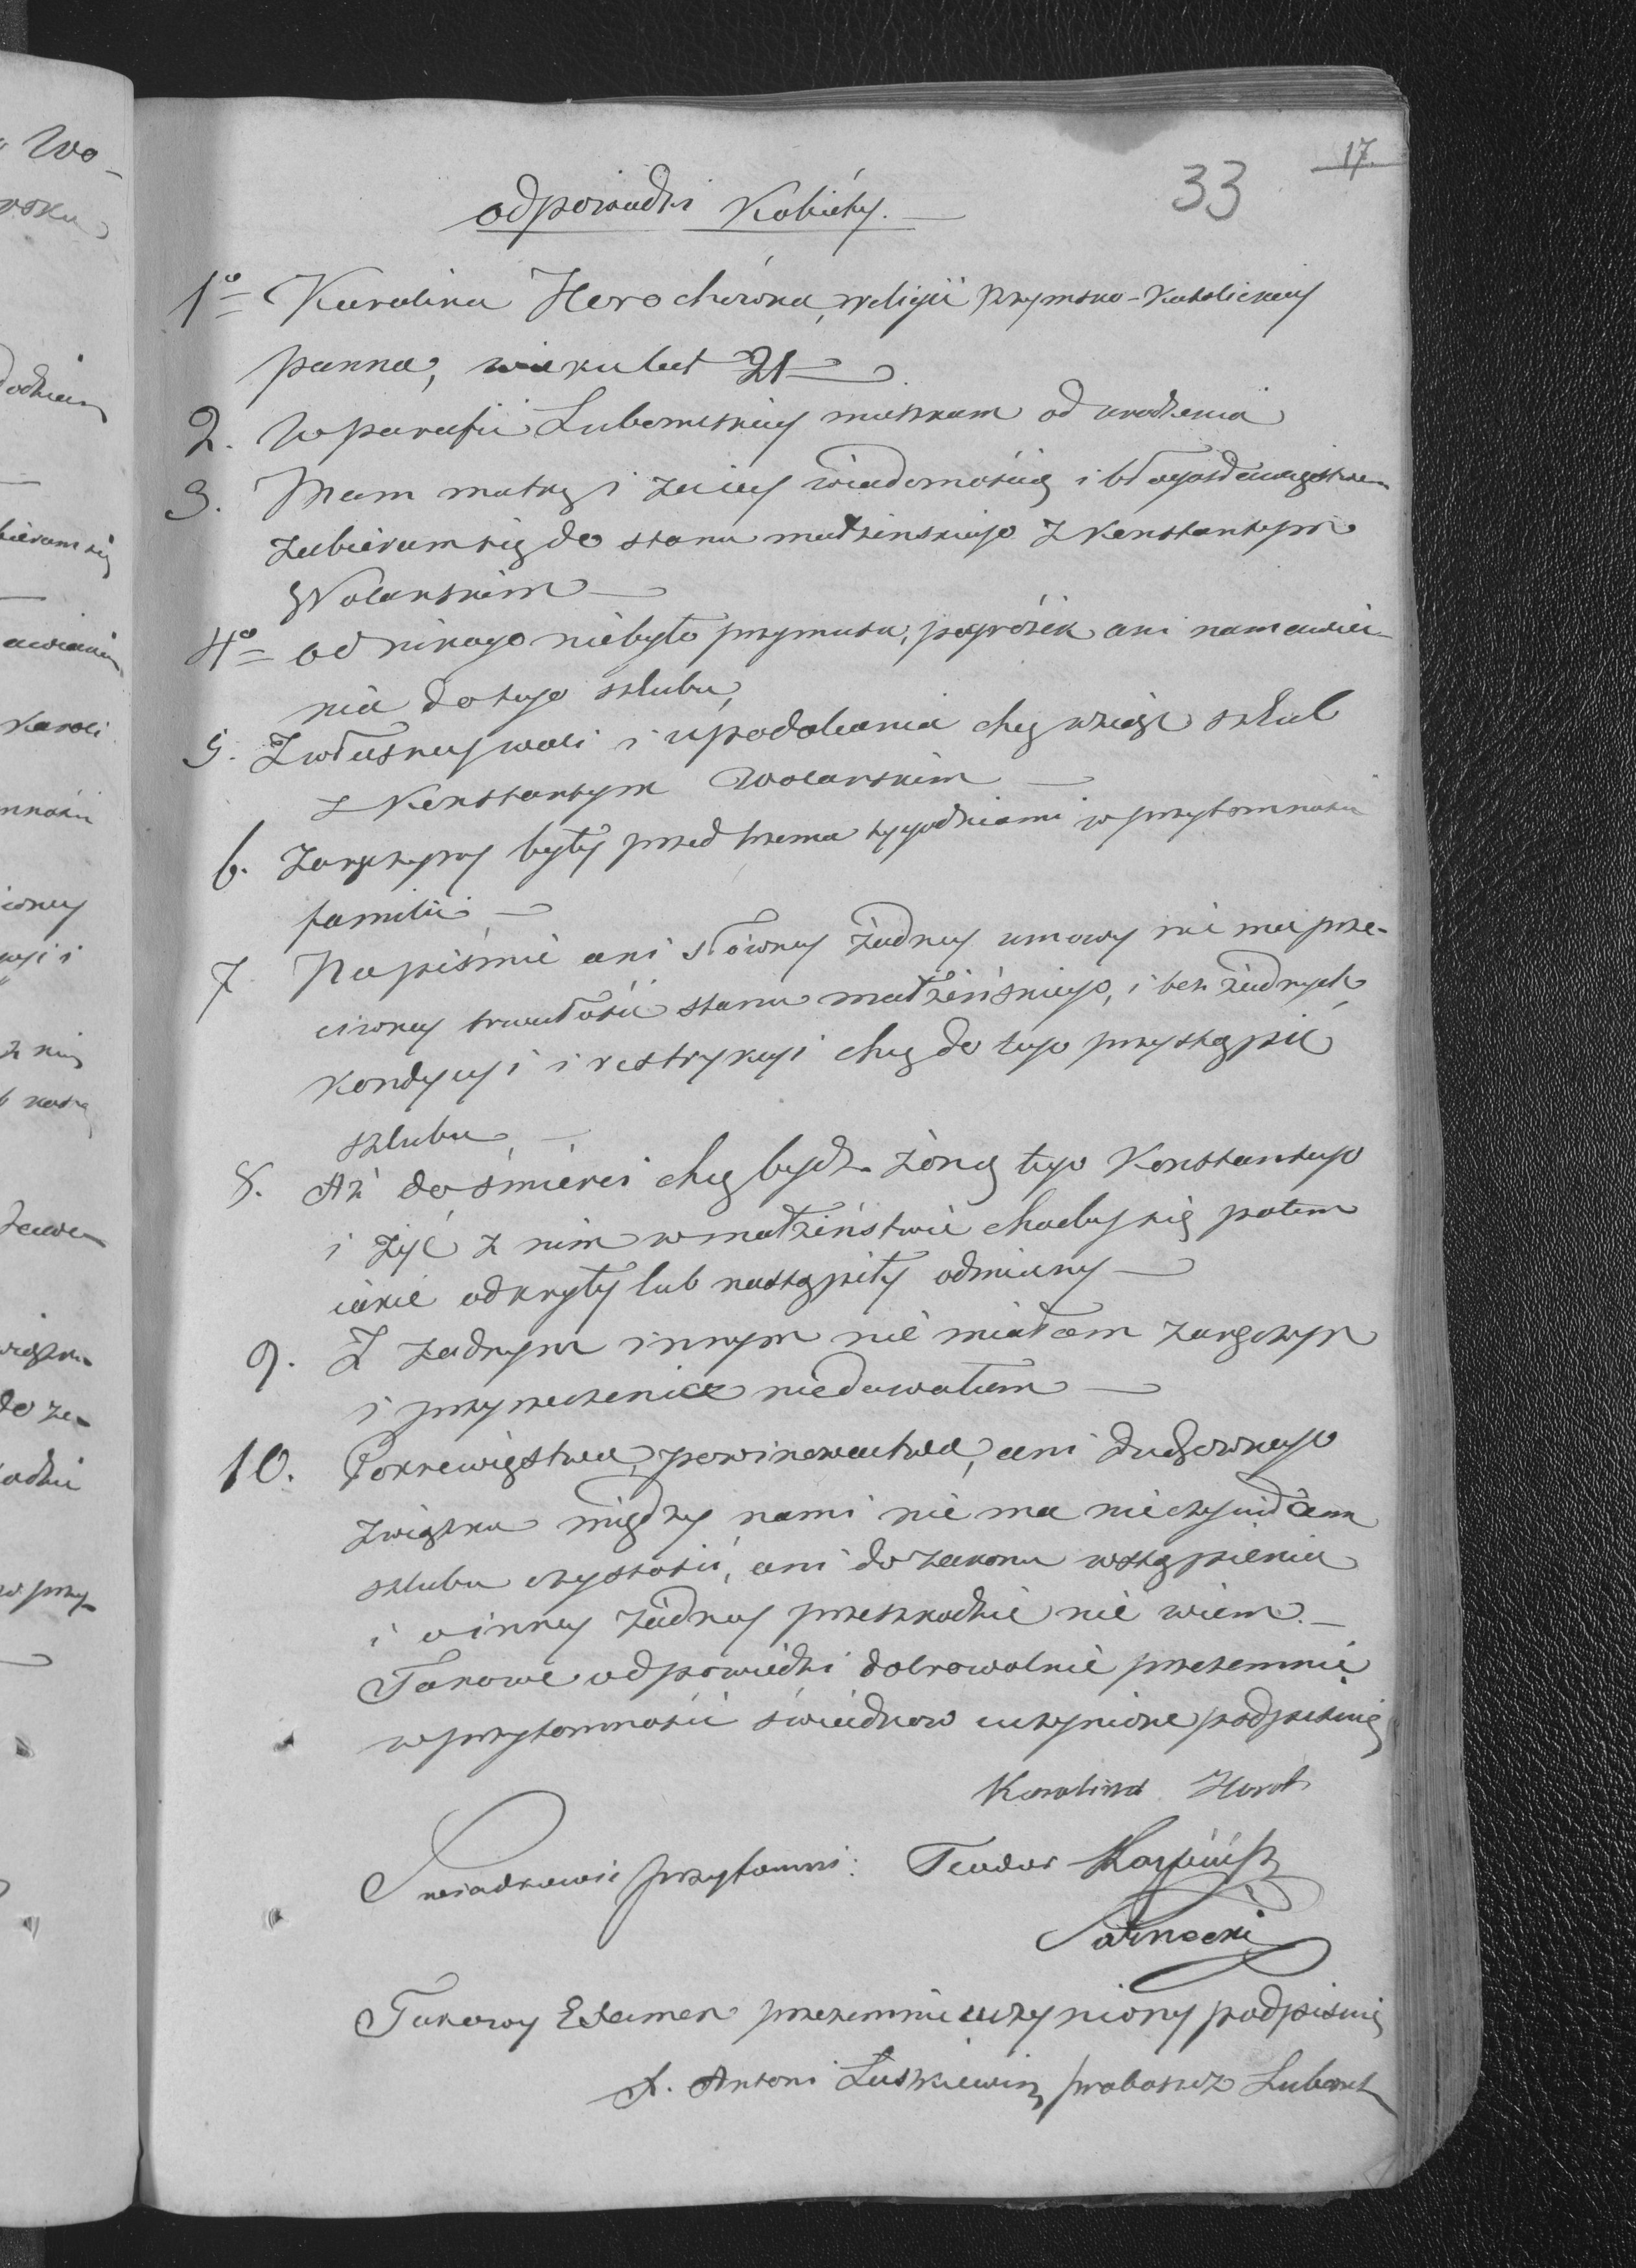 17.
33
odpowiedzi Kobiéty.
1º Karolina Horochówna, religii Rzymsko-Katolickiey
panna, wieku lat 21
2. W parafii Lubomlskiey mieszkam od urodzenia
3. Mam matkę i za iey wiadomością i błogosławieństwem
zabieram się do stanu małżenskiego z Konstantym
Wolanskim
4º od nikogo niebyło przymusu, pogróżek ani namawia-
nia do tego szlubu,
5. Z własney woli i upodobania chcę wziąść szlub
z Konstantym Wolanskim
6. Zaręczyny były przed trzema tygodniami w przytomności
familii
7 Na piśmie ani słówney żadney umowy nie ma prze-
ciwney trwałości stanu małżeńskiego, i bez żadnych
kondycyi i restrykcyi chcę do tego przystąpić
szlubu
8. Aż do śmierci chcę bydź żoną tego Konstantego
i żyć z nim w małżeństwie choćby się potem
iakie odkryły lub nastąpiły odmiany
9. Z żadnym innym nie miałam zaręczyn
i przyrzeczenia niedawałam
10. Pokrewieństwa, powinowactwa, ani duchownego
związku między nami nie ma nieczyniłam
szlubu czystości, ani do zakonu wstąpienia
i o inney żadney przeszkodzie nie wiem.
Takowe odpowiedzi dobrowolnie przezemnie
w przytomności świadkow uczynione podpisuię
Karolina Horoch
Swiadkowie przytomni: Teodor
Takowy Examen przezemnie uczyniony podpisuię
X. Antoni Luszkiewicz proboszcz Luboml
Wo-
Karoli